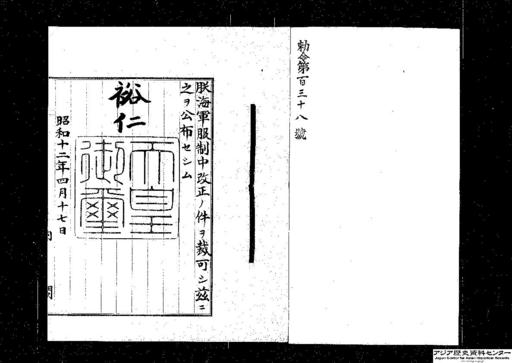 勅令第百三十八號
朕海軍服制中改正ノ件ヲ裁可シ茲ニ
之ヲ公布セシム
裕仁
天皇
御璽
昭和十二年四月十七日
内閣
アジア歴史資料センター
Japan Center for Asian Historical Records